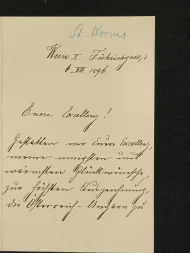 St. Worms
Wien I Führichgasse 3
8 XII 1896
Euere Excellenz!
Gestatten mir Euere Excellenz,
meine innigsten und
wärmsten Glückwünsche,
zur höchsten Auszeichnung,
die Österreich-Ungarn zu